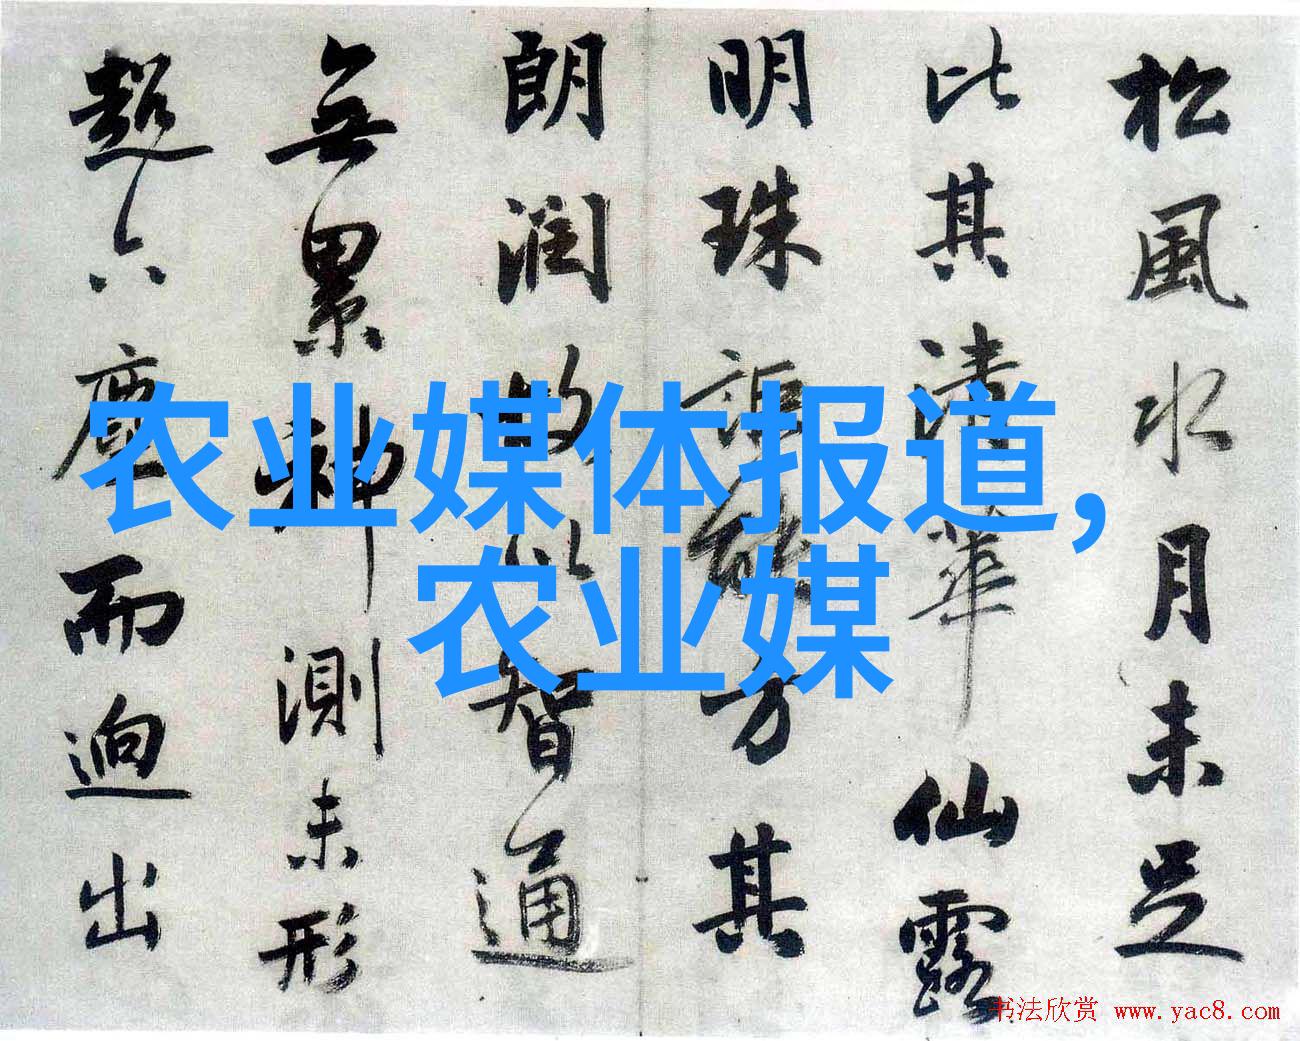 松風水月未足
比其清華仙露
明珠詎能方其
朗潤故以智通
無累神測未形
超六塵而迥出
农业媒体报道,
农业媒
书法欣赏 www.yac8.com